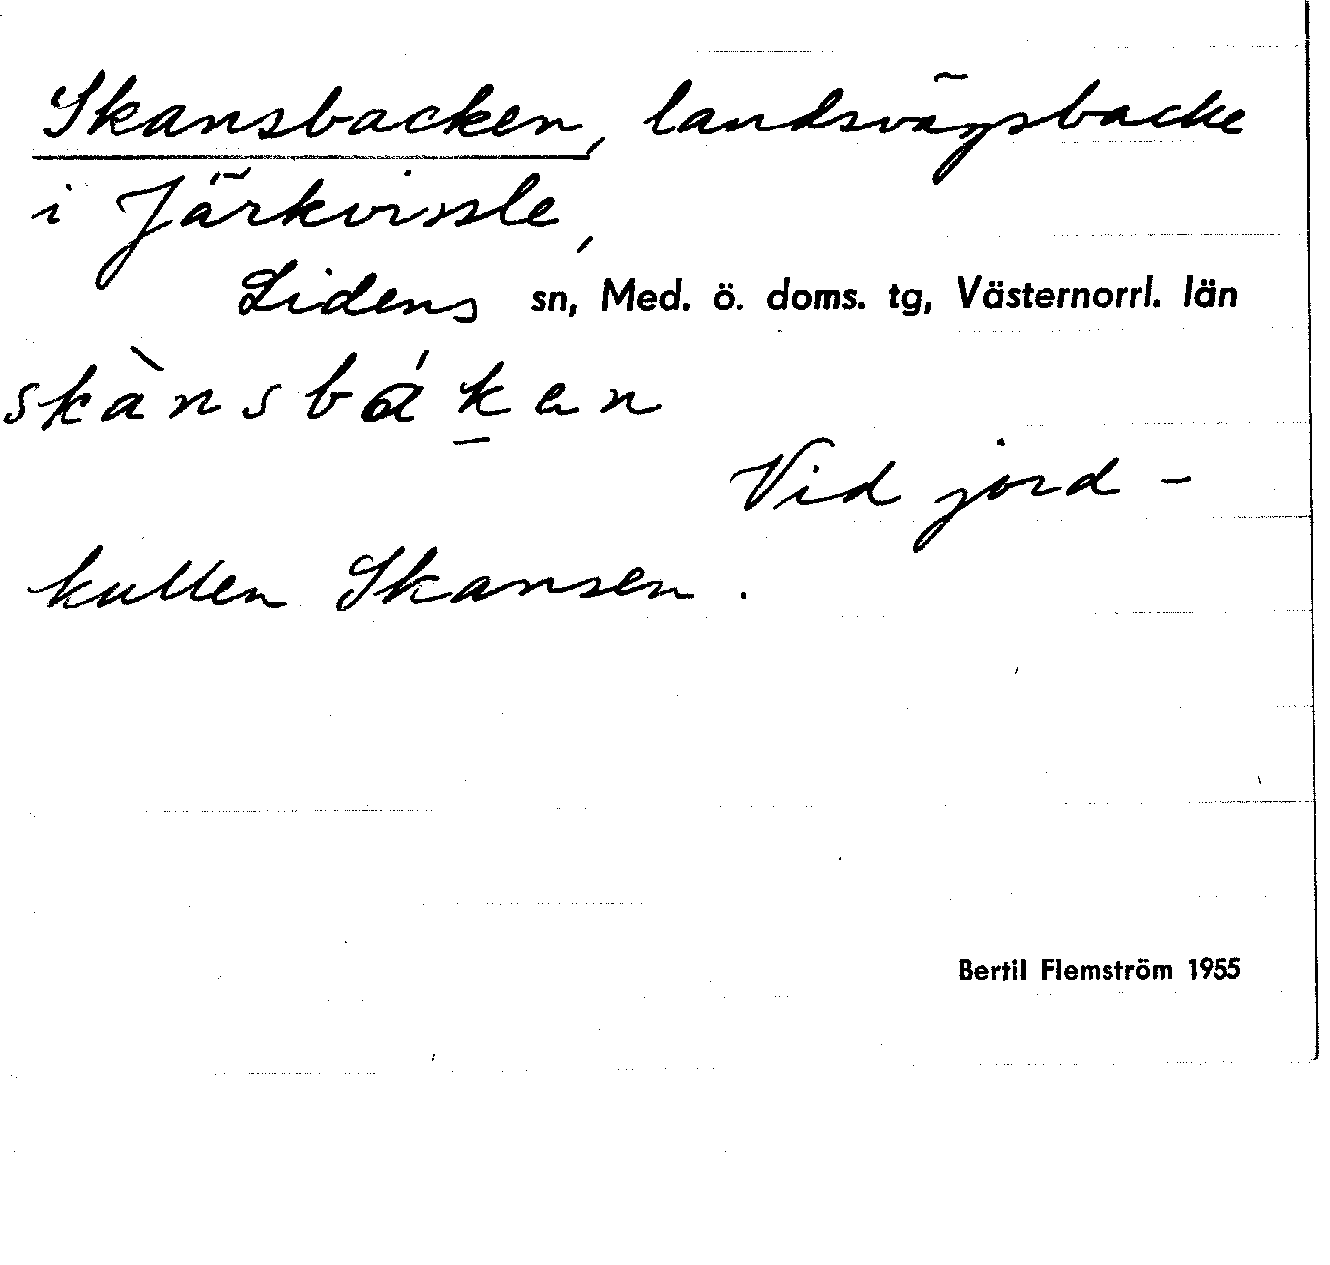 Skansbacken, landsvägsbacke
i Järkvissle,
Lidens sn, Med. ö. doms. tg, Västernorrl. län
skànsbáḵen
Vid jord-
kullen Skansen.
Bertil Flemström 1955